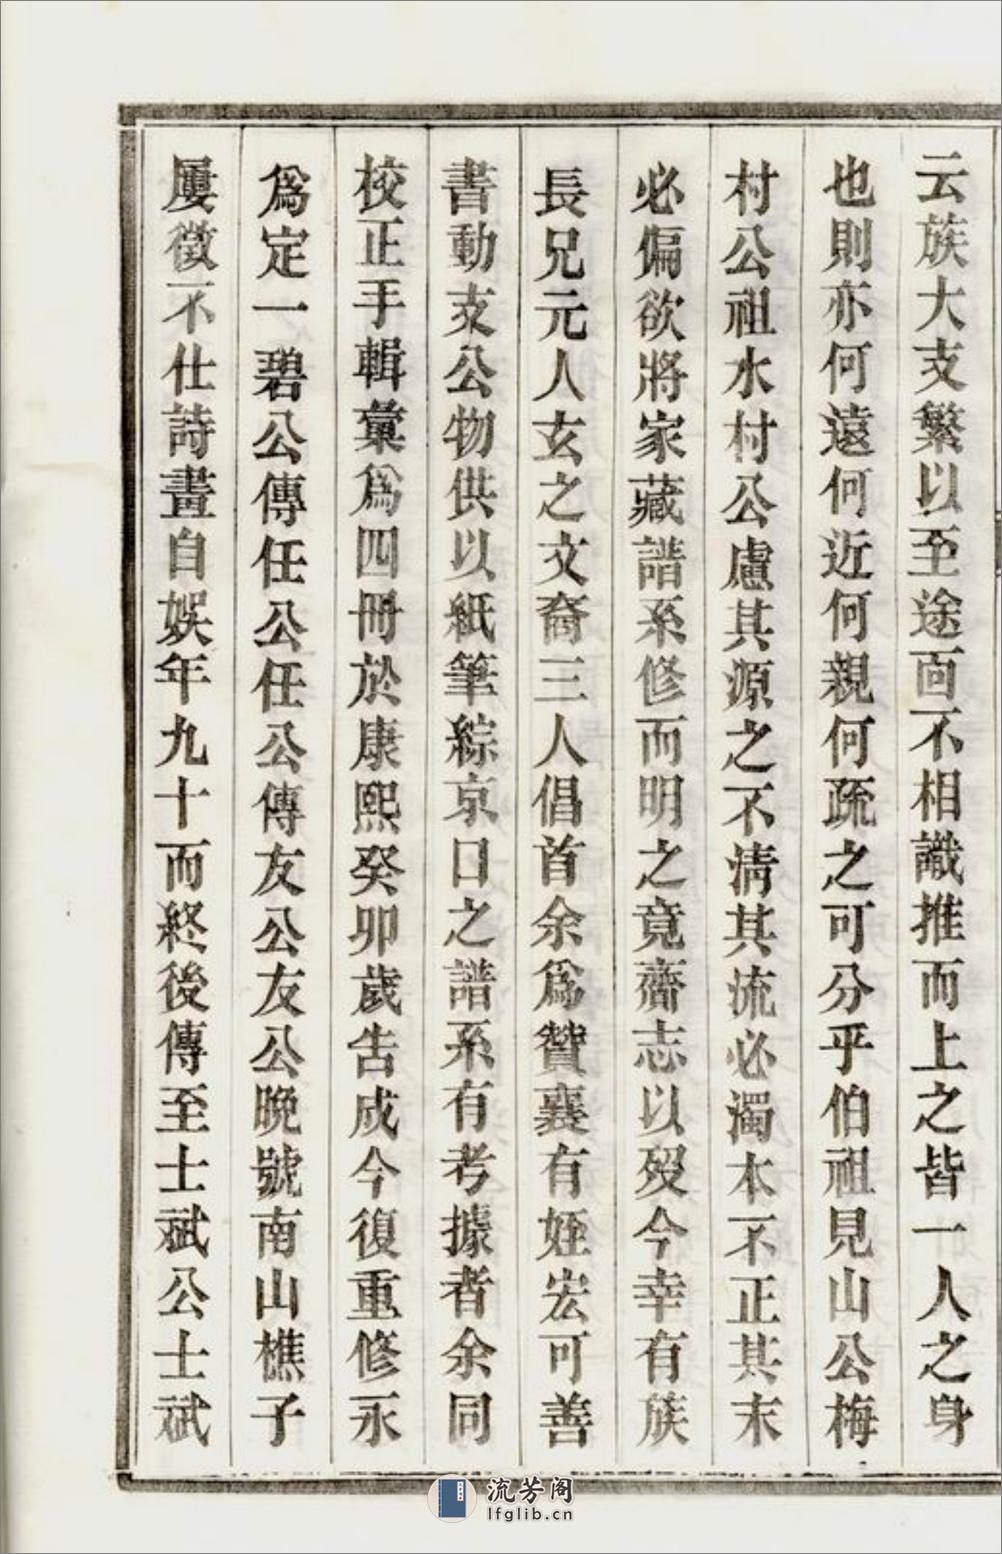 云族大支繁以至途面不相識推而上之皆一人之身
也則亦何遠何近何親何疏之可分乎伯祖見山公梅
村公祖水村公慮其源之不清其流必濁本不正其末
必偏欲將家藏譜系修而明之竟齎志以歿今幸有族
長兄元人玄之文裔三人倡首余爲贊襄有姪宏可善
書動支公物供以紙筆綜京口之譜系有考據者余同
校正手輯彙爲四冊於康熙癸卯歲告成今復重修永
爲定一碧公傳任公任公傳友公友公晚號南山樵子
屢徵不仕詩畫自娛年九十而終後傳至士斌公士斌
流芳阁
lfglib.cn